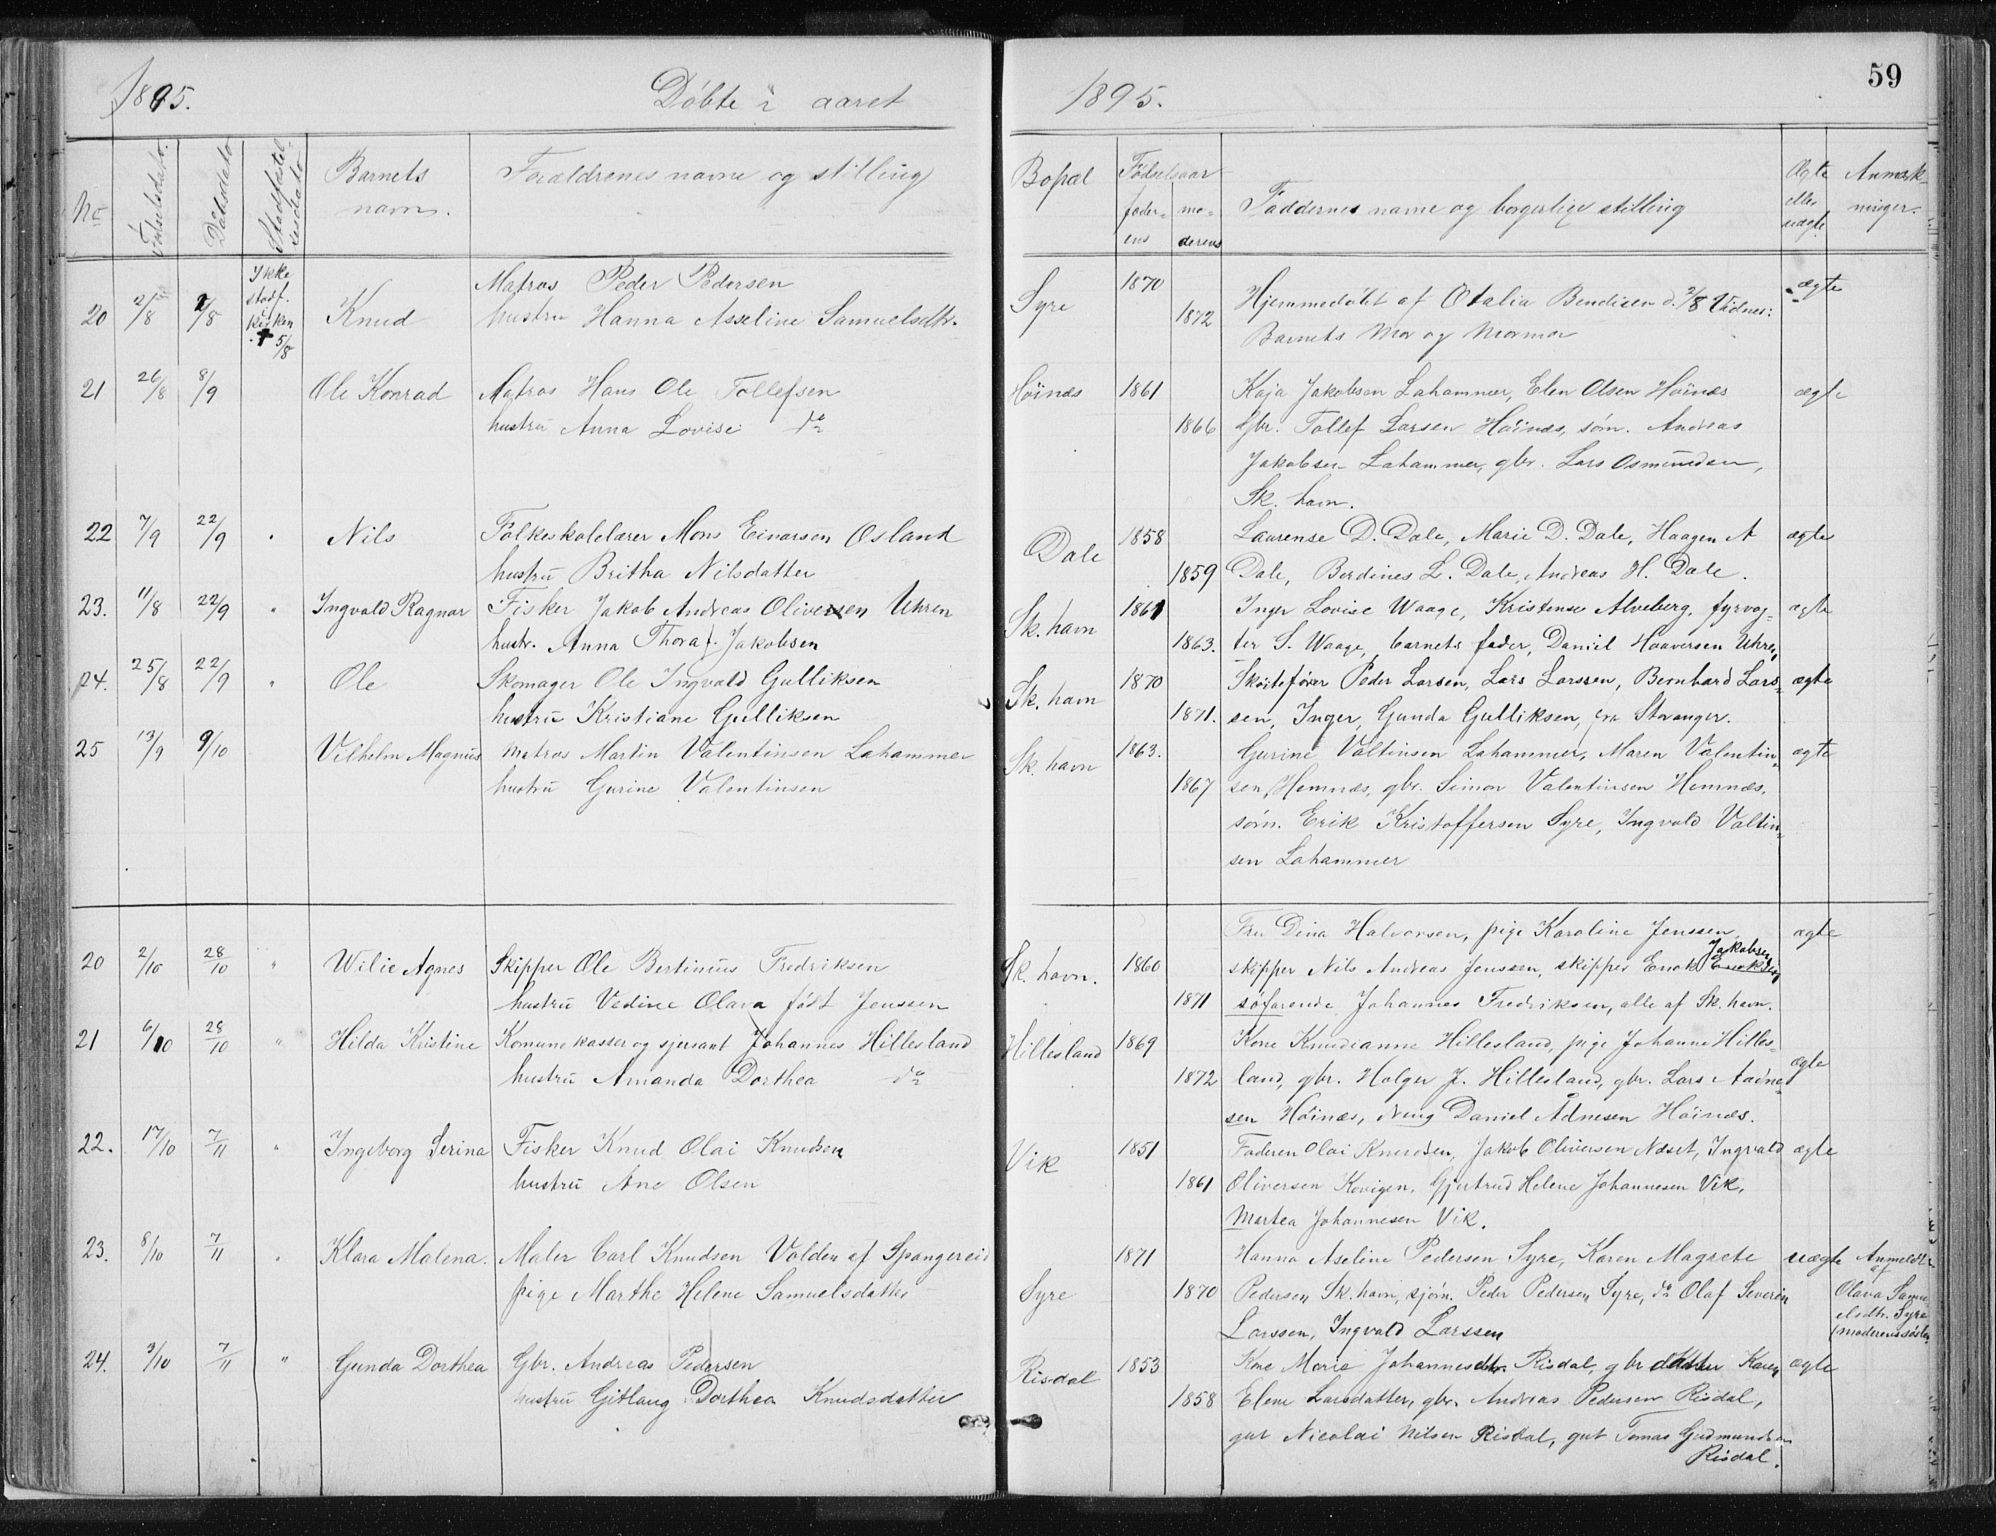 59
1895. Døbte i aaret 1895.
No Fødselsdato. Daabsdato Stadfæstelsesdato Barnets navn. Forældrenes navne og stilling Bopæl Fødselsaar faderens moderens Faddernes navne og borgerlige stilling Ægte eller uægte Anmærkninger.
20 2/8 2/8 Ikke stadf. i kirken † 5/8 Knud Matros Peder Pedersen Syre 1870 Hjemmedøbt af Otalia Bendiksen d. 2/8 Vidner: ægte
hustru Hanna Asseline Samuelsdtr. 1872 Barnets Mor og Mormor
21 26/8 8/9 Ole Konrad Matros Hans Ole Tollefsen Høinæs 1861 Kaja Jakobsen Lahammer, Elen Olsen Høinæs ægte
hustru Anna Lovise do 1866 Gbr. Tollef Larsen Høinæs, søm. Andreas
Jakobsen Lahammer, gbr. Lars Osmundsen,
Sk. havn.
22 7/9 22/9 Nils Folkeskolelærer Mons Einarsen Osland Dale 1858 Laurense D. Dale, Marie D. Dale, Haagen A ægte
hustru Britha Nilsdatter 1859 Dale, Berdines L. Dale, Andreas H. Dale.
23. 11/8 22/9 " Ingvald Ragnar Fisker Jakob Andreas Oliversen Uhren Sk. havn 1861 Inger Lovise Waage, Kristense Alveberg, fyrvog- ægte
hustr. Anna Thora f. Jakobsen 1863. ter S. Waage, barnets fader, Daniel Haaversen Uhre,
24. 25/8 22/9 " Ole Skomager Ole Ingvald Gulliksen Sk. havn 1870 Skøitefører Peder Larsen, Lars Larssen, Bernhard Lars- ægte
hustru Kristiane Gulliksen 1871. sen, Inger, Gunda Gulliksen, fra Stavanger.
25 13/9 9/10 Vilhelm Magnus Matros Martin Valentinsen Lahammer Sk. havn 1863. Gurine Valtinsen Lahammer, Maren Valentin- ægte
hustru Gurine Valentinsen 1867 sen Hemnæs, gbr. Simon Valentinsen Hemnæs,
søm. Erik Kristoffersen Syre, Ingvald Valtin-
sen Lahammer
Fru Dina Halvorsen, pige Karoline Jenssen ægte
20 2/10 28/10 " Wilie Agnes Skipper Ole Bertinius Fredriksen Sk. havn. 1860 skipper Nils Andreas Jenssen, skipper Enok Jakobsen
hustru Vedine Olava født Jenssen 1871 søfarende Johannes Fredriksen, alle af Sk. havn.
21 6/10 28/10 " Hilda Kristine Komunekasser og sjersant Johannes Hillesland Hillesland 1869 Kone Knudianne Hillesland, pige Johanne Hilles-
hustru Amanda Dorthea do 1872 land, gbr. Holger J. Hillesland, gbr. Lars Aadne- ægte
sen Høinæs, Daniel Ådnesen Høinæs.
22. 17/10 7/11 " Ingeborg Serina Fisker Knud Olai Knudsen Vik 1851 Faderen Olai Knudsen, Jakob Oliversen Næset, Ingvald ægte
hustru Ane Olsen 1861 Oliversen Kovigen, Gjertrud Helene Johannesen Vik,
Martea Johannesen Vik.
23. 8/10 7/11 " Klara Malena. Maler Carl Knudsen Valden af Spangereid 1871 Hanna Aseline Pedersen Syre, Karen Magrete uægte Anmeldt af
pige Marthe Helene Samuelsdatter Syre 1870 Pedersen Sk. havn, sjøm. Peder Pedersen Syre, do Olaf Severin Olava Samu
elsdtr. Syre
Larssen, Ingvald Larssen (moderens søster
24. 3/10 7/11 " Gunda Dorthea Gbr. Andreas Pedersen Risdal 1853 Kone Marie Johannesdtr. Risdal, gbr datter Karen ægte
hustru Gitlaug Dorthea Knudsdatter 1858 Elene Larsdatter, gbr. Andreas Pedersen Risdal,
gut Nicolai Nilsen Risdal, gut Tomas Gudmundsen
Risdal.